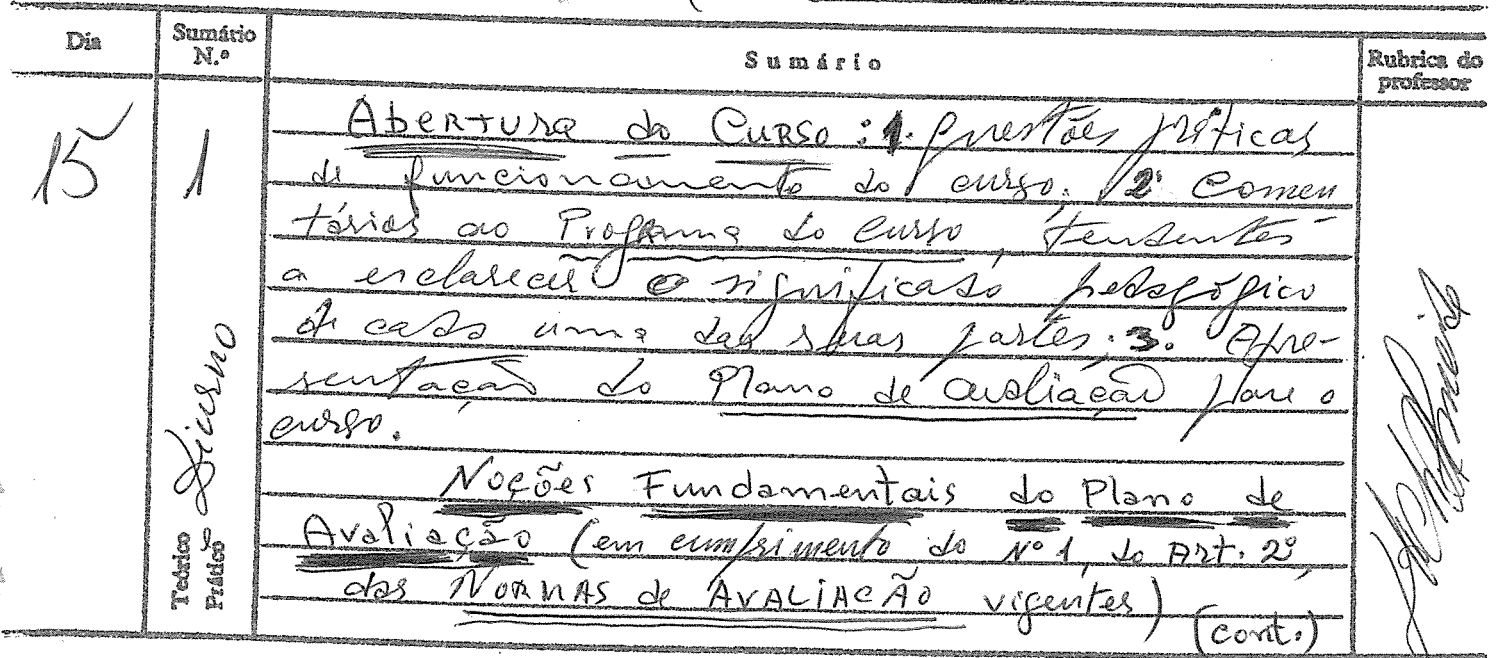 Dia
Sumário
N.º
Sumário
Rubrica do
professor
15
1
Abertura do Curso: 1. Questões práticas
de funcionamento do curso; 2. Comen
tários ao Programa do Curso, tendentes
a esclarecer o significado pedagógico
de cada uma das suas partes; 3. Apre-
sentação do Plano de avaliação para o
curso.
Noções Fundamentais do Plano de
Avaliação (em cumprimento do Nº 1, do Art. 2º,
das NORMAS de AVALIAÇÃO vigentes)
(cont.)
Teórico
Prático
Diurno